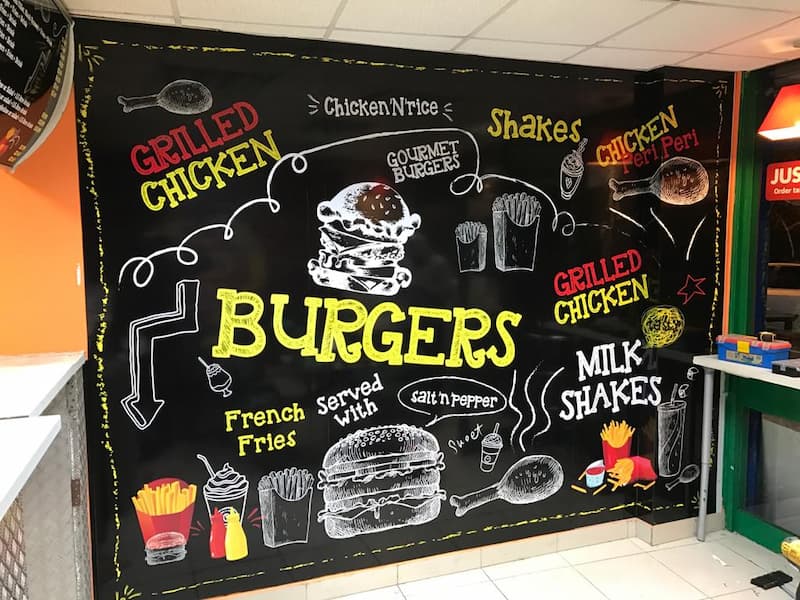 GRILLED
CHICKEN
Chicken'N'rice
GOURMET
BURGERS
Shakes
CHICKEN
Peri Peri
JUS
GRILLED
CHICKEN
BURGERS
MILK
SHAKES
French
Fries
Served
with
salt'n'pepper
Sweet